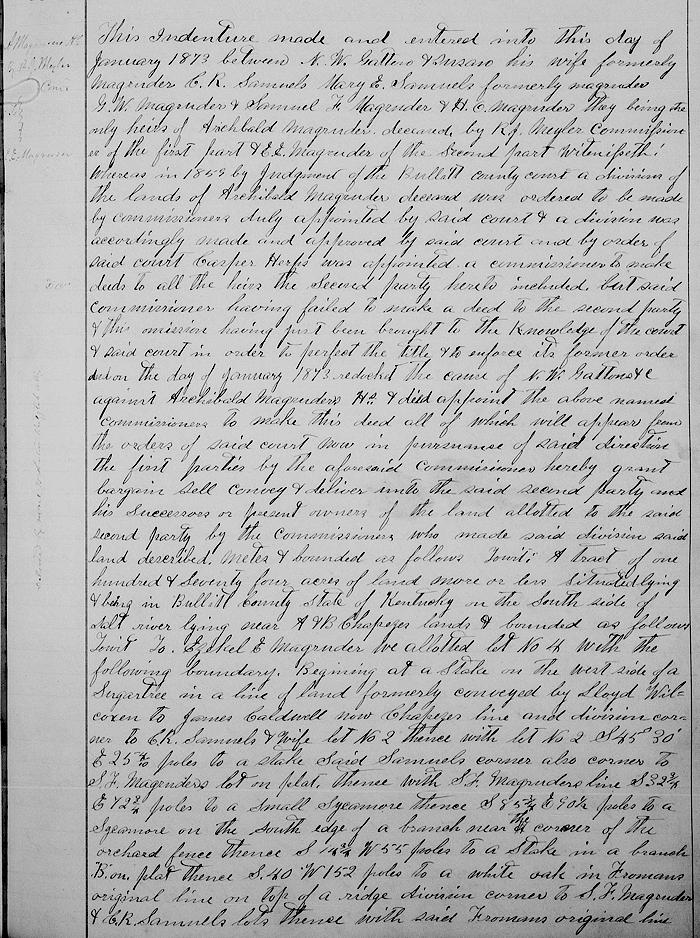 A Magruders Hs
This Indenture made and entered into this day of
January 1873 between N. W. Gatton & Susan his wife formerly
Magruder C. R. Samuels Mary E. Samuels formerly magruder
G. W. Magruder & Samuel F. Magruder & H. C. Magruder they being the
only heirs of Archbald Magruder. deceased, by R. J. Meyler Commission
er of the first part & E. E. Magruder of the Second part Witnesseth!
Whereas in 1859 by Judgment of the Bullitt county court a division of
the lands of Archibald Magruder deceased was ordered to be made
by commissioners duly appointed by said court & a division was
accordingly made and approved by said court and by order of
said court Casper Herps was appointed a commissioner to make
deeds to all the heirs the Second party hereto included, but said
Commissioner having failed to make a deed to the second party
& this omission having just been brought to the Knowledge of the court
& said court in order to perfect the title, & to enforce its former order
did on the day of January 1873 redocket the cause of N. W. Gattons &c
against Archibald Magruders Hs & did appoint the above named
Commissioner to make this deed all of which will appear from
the orders of said court Now in pursuance of said direction
the first parties by the aforesaid Commissioner hereby grant
bargain Sell Convey & deliver unto the said second party and
his Successors or present owners of the land allotted to the said
second party by the Commissioners who made said division said
land described, metes & bounded as follows Towit: A tract of one
hundred & Seventy four acres of land more or less Situated lying
& being in Bullitt County State of Kentucky on the South side of
Salt river lying near A & B Chapezes lands & bounded as follows
Towit To. Ezekiel E Magruder we allotted lot No 4 with the
following boundary. Begining at a Stake on the west side of a
Sugartree in a line of land formerly conveyed by Lloyd Wil-
coxen to James Caldwell now Chapezes line and division cor-
ner to C. R. Samuels & Wife lot No 2 thence with lot No 2 S 45° 30'
E 25 poles to a stake Said Samuels corner also corner to
S. F. Magruders lot on plat, thence with S. F. Magruders line S 32
E poles to a Small Sycamore thence S E 90½ poles to a
Sycamore on the south edge of a branch near the corner of the
orchard fence thence S W 55 poles to a Stake in a branch
B. on. plat thence S. 40 W 152 poles to a white oak in Fromans
original line on top of a ridge division corner to S. F. Magruder
& C. R. Samuels lots thence with said Fromans original line